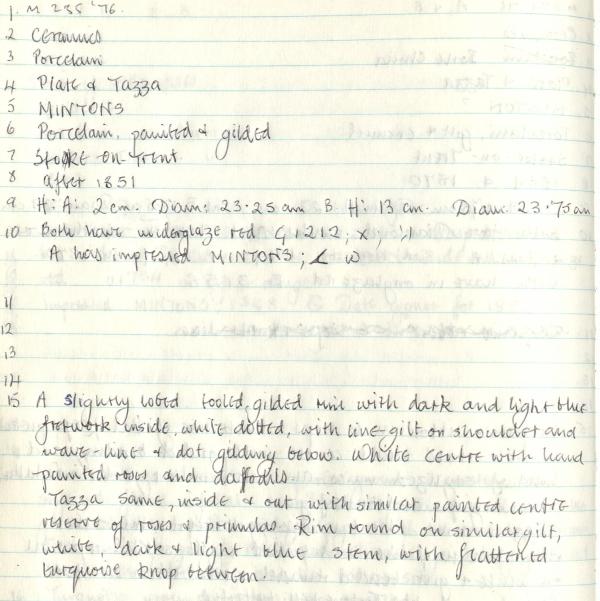 1. M 235 '76.
2 Ceramics
3 Porcelain
4 Plate & Tazza
5 MINTONS
6 Porcelain, painted & gilded
7 Stoke-on-Trent
8 after 1851
9 H: A: 2 cm. Diam: 23.25 cm B: H: 13 cm. Diam: 23.75 cm
10 Both have underglaze red G,1212; x,
A has impressed MINTONS;
11
12
13
14
15 A slightly lobed tooled, gilded rim with dark and light blue
fretwork inside, white dotted, with line-gilt on shoulder and
wave-line & dot gilding below. White centre with hand
painted roses and daffodils.
Tazza same, inside & out with similar painted centre
reserve of roses & primulas. Rim round on similar gilt,
white, dark & light blue stem, with flattened
turquoise knop between.